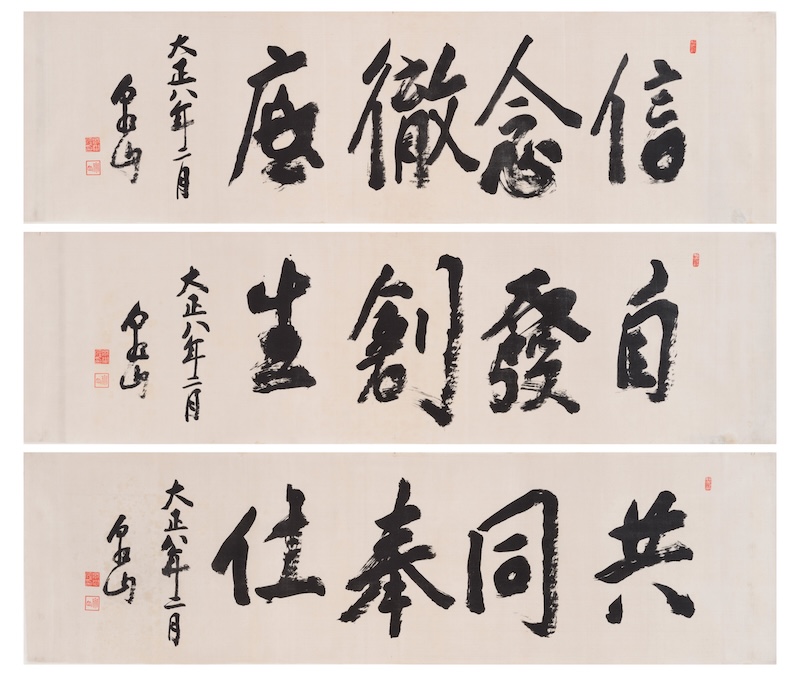 信念徹底
大正八年二月
泉山
自發創生
大正八年二月
泉山
共同奉仕
大正八年二月
泉山